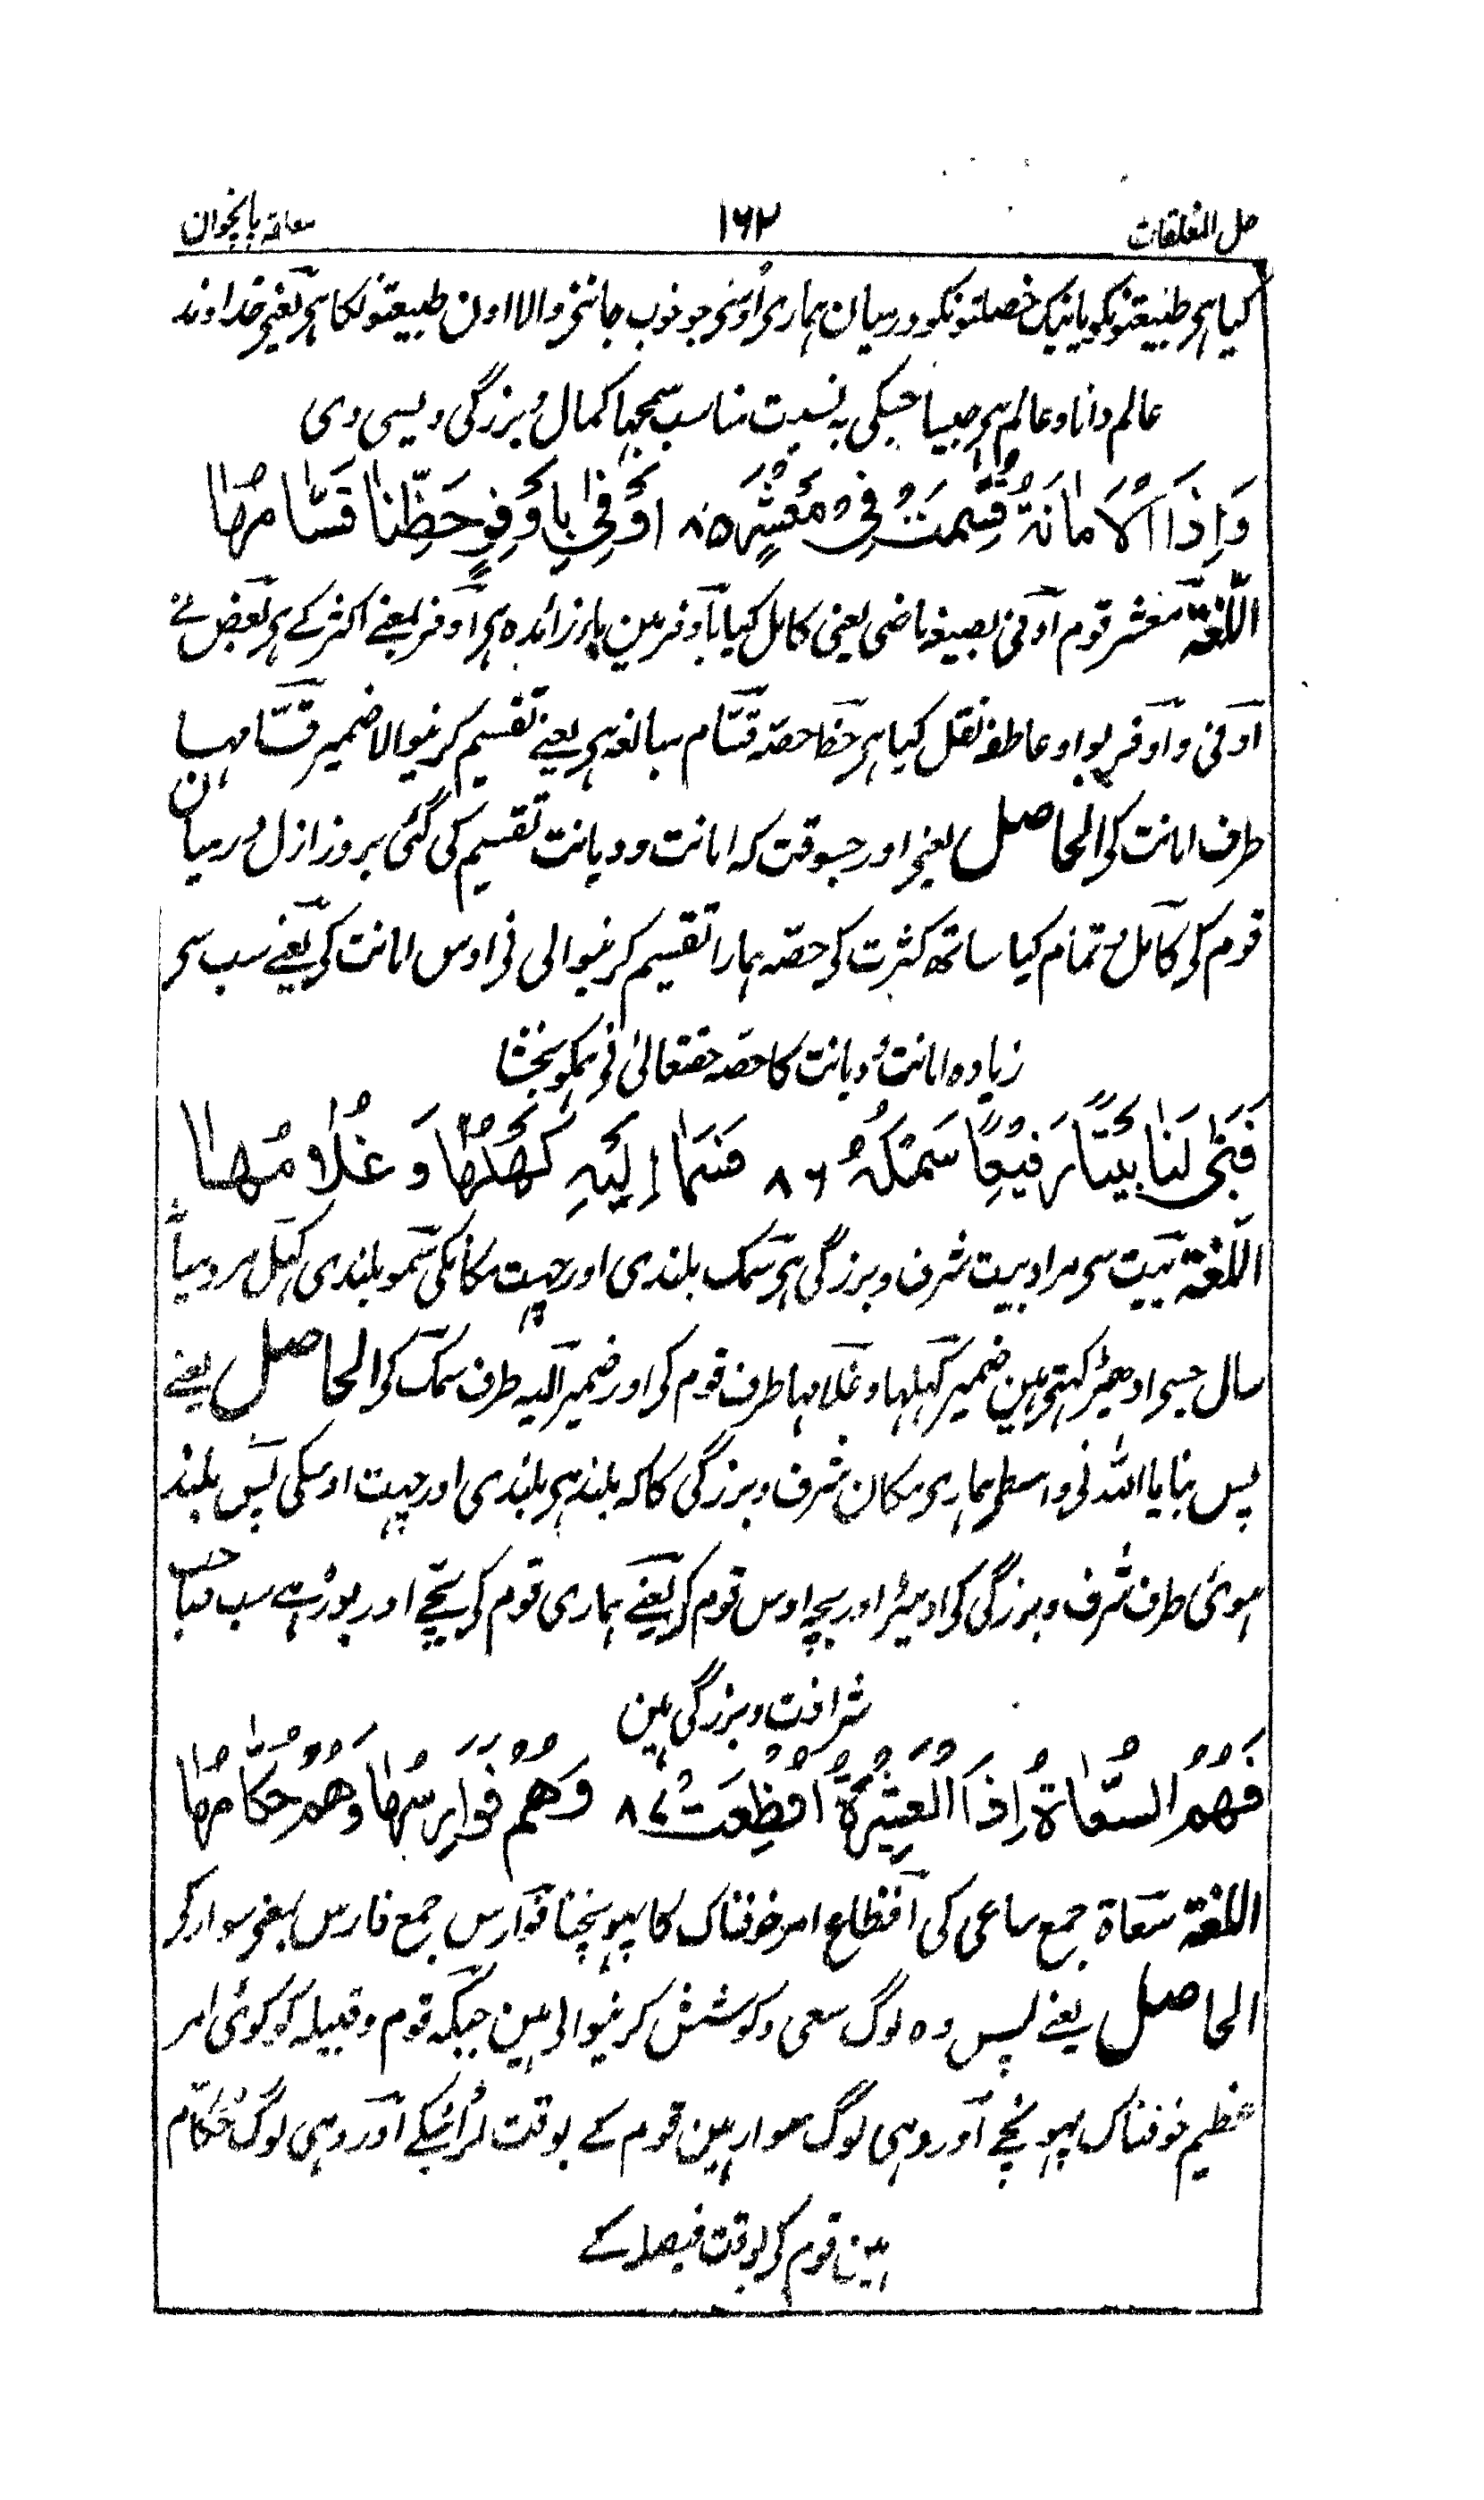 حل المعلقات ۱۶۲ معلقہ پانچوان
کیا ہی طبیعتونکو یا نیک خصلتونکو درمیان ہماری اوسنی جو خوب جاننی والا اون طبیعتونکا ہی یعنی خداوند
عالم دانا و عالم ہی جیسا جسکی بہ نسبت مناسب سمجہا کمال و بزرگی ویسی دی
وَاِذَا الْاَمَانَۃُ قُسِّمَتْ فِیْ مَعْشَرٍ ۸۵ اَوْفٰی بِاَوْفَرِ حَظِّنَا قَسَّامُہَا
اللّغۃ معشر قوم اوفی بصیغہ ماضی یعنی کامل کیا باوفر مین باء زائدہ ہی اوفر بمعنے اکثر کے ہی بعض نے
اوفی و اوفر بواو عاطفہ نقل کیا ہی حظ حصّہ قسّام مبالغہ ہی یعنے تقسیم کرنیوالا ضمیر قسّامہا
طرف امانت کی الحاصل یعنی اور جسوقت کہ امانت و دیانت تقسیم کی گئی بروز ازل درمیان
قوم کی کامل و تمام کیا ساتھ کثرت کی حصّہ ہمارا تقسیم کرنیوالی نی اوس امانت کی یعنے سب سی
زیادہ امانت و دیانت کا حصہ حقتعالیٰ نی ہمکو بخشا
فَبَنٰی لَنَا بَیْتًا رَفِیْعًا سَمْکُہٗ ۸۶ فَسَمَا اِلَیْہِ کَہْلُہَا وَ غُلَامُہَا
اللّغۃ بیت سی مراد بیت شرف و بزرگی ہی سمک بلندی اور چہت مکانکی سمو بلندی کہل مرد میانہ
سال جسی ادھیڑ کہتی ہین ضمیر کہلہا و غلامہا طرف قوم کی اور ضمیر الیہ طرف سمک کی الحاصل یعنے
پس بنایا اللہ نی واسطی ہماری مکان شرف و بزرگی کا کہ بلند ہی بلندی اور چہت اوسکی پس بلند
ہوئی طرف شرف و بزرگی کی ادہیڑ اور بچہ اوس قوم کی یعنے ہماری قوم کی بچّے اور بوڑہے سب صاحب
شرافت و بزرگی ہین
فَہُمُ السُّعَاۃُ اِذَا الْعَشِیْرَۃُ اُفْظِعَتْ ۸۷ وَہُمْ فَوَارِسُہَا وَہُمْ حُکَّامُہَا
اللغۃ سعاۃ جمع ساعی کی افظاع امر خوفناک کا پہونچنا فوارس جمع فارس بمعنی سوار کی
الحاصل یعنے پس وہ لوگ سعی و کوشش کرنیوالی ہین جبکہ قوم و قبیلہ کو کوئی امر
عظیم خوفناک پہونچے اور وہی لوگ سوار ہین قوم کے بوقت لڑائیکے اور وہی لوگ حکّام
ہین قوم کی بوقت فیصلہ کے